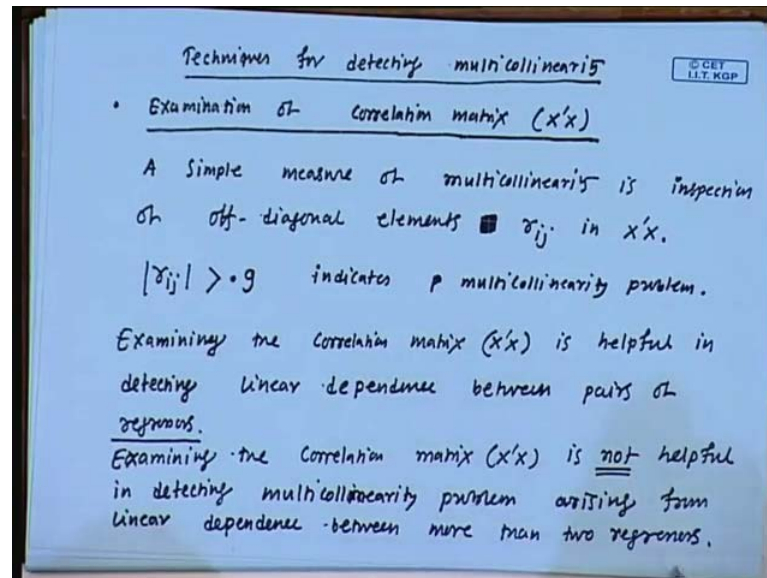 Techniques for detecting multicollinearity
© CET
I.I.T. KGP
• Examination of Correlation matrix (x'x)
A Simple measure of multicollinearity is inspection
of off-diagonal elements rij in x'x.
|rij| > .9 indicates multicollinearity problem.
Examining the Correlation matrix (x'x) is helpful in
detecting linear dependence between pairs of
regressors.
Examining the Correlation matrix (x'x) is not helpful
in detecting multicollinearity problem arising from
linear dependence between more than two regressors.